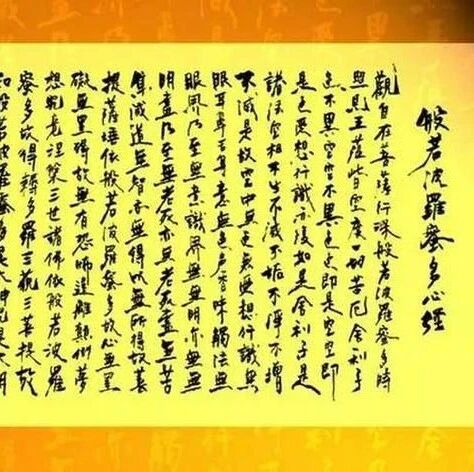 般若波羅蜜多心經
觀自在菩薩行深般若波羅蜜多時
照見五蘊皆空度一切苦厄舍利子
色不異空空不異色色即是空空即
是色受想行識亦復如是舍利子是
諸法空相不生不滅不垢不淨不增
不減是故空中無色無受想行識無
眼耳鼻舌身意無色聲香味觸法無
眼界乃至無意識界無無明亦無無
明盡乃至無老死亦無老死盡無苦
集滅道無智亦無得以無所得故菩
提薩埵依般若波羅蜜多故心無罣
礙無罣礙故無有恐怖遠離顛倒夢
想究竟涅槃三世諸佛依般若波羅
蜜多故得耨多羅三藐三菩提故
知般若波羅蜜多是大神咒是大明